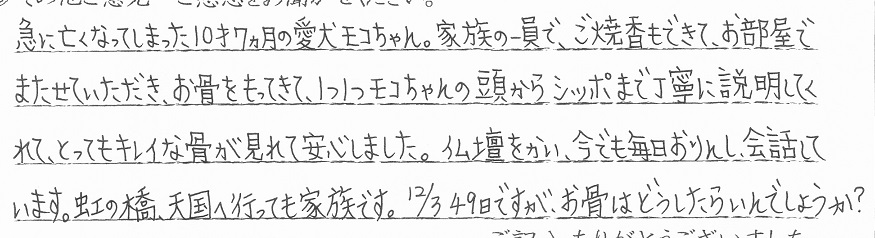 その他ご意見・ご感想をお聞かせください。
急に亡くなってしまった10才7ヵ月の愛犬モコちゃん。家族の一員で、ご焼香もできて、お部屋で
またせていただき、お骨をもってきて、1つ1つモコちゃんの頭からシッポまで丁寧に説明してく
れて、とってもキレイな骨が見れて安心しました。仏壇をかい、今でも毎日おりんし、会話して
います。虹の橋、天国へ行っても家族です。12/3 49日ですが、お骨はどうしたらいいんでしょうか?
ご記入ありがとうございました